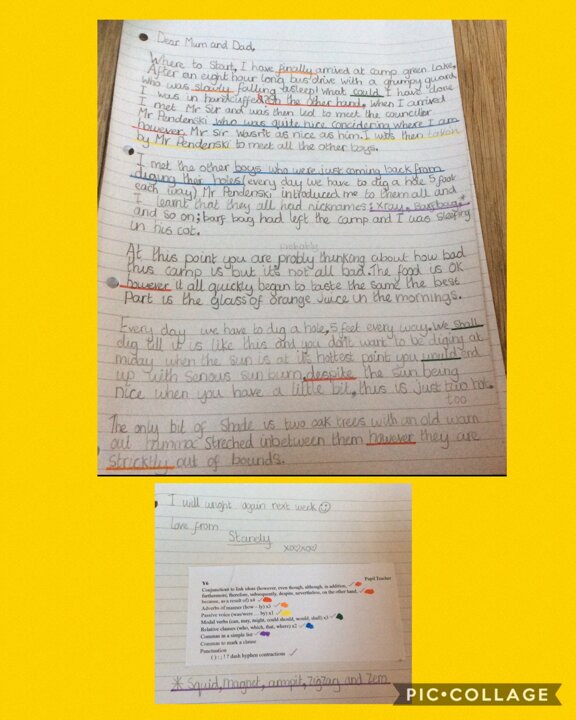 Dear Mum and Dad,
Where to start, I have finally arrived at camp green lake.
After an eight hour long bus drive with a grumpy guard
who was slowly falling asleep! What could I have done
I was in handcuffs on the other hand. When I arrived
I met Mr Sir and was then led to meet the counciler
Mr Pendenski who was quite nice concidering where I am
however, Mr Sir wasn't as nice as him. I was then taken
by Mr Pendenski to meet all the other boys.
I met the other boys who were just coming back from
diguing their holes (every day we have to dig a hole 5 foot
each way) Mr Pendenski introduced me to them all and
I learnt that they all had nicknames: xray, Barfbag,*
and so on; barf bag had left the camp and I was sleeping
in his cot.
probably
At this point you are probly thinking about how bad
this camp is but its not all bad. The food is OK
however it all quickly began to taste the same the best
part is the glass of orange juice in the mornings.
Every day we have to dig a hole, 5 feet every way. We shall
dig till it is like this and you don't want to be diguing at
miday when the sun is at its hottest point you would end
up with serious sun burn, despite the sun being
nice when you have a little bit, this is just two hot.
too
The only bit of shade is two oak trees with an old warn
out hammac streched inbetween them however they are
stricktly out of bounds.
I will wright again next week
love from
Stanely
xoxoxoxo
Y6 Pupil Teacher
Conjunctions to link ideas (however, even though, although, in addition,
furthermore, therefore, subsequently, despite, nevertheless, on the other hand,
because, as a result of) x4
Adverbs of manner (how - ly) x3
Passive voice (was/were … by) x1
Modal verbs (can, may, might, could should, would, shall) x3
Relative clauses (who, which, that, where) x2
Commas in a simple list
Commas to mark a clause
Punctuation
( ) : ; ! ? dash hyphen contractions
* Squid, magnet, armpit, zigzag and Zero
PIC•COLLAGE